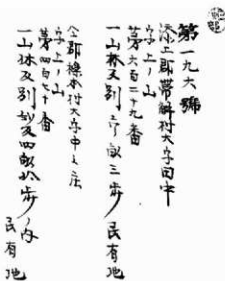 第一九六號
添上郡帯解村大字田中
字上ノ山
第六百二十九番
一山林反別壱畝三歩 民有地
仝郡櫟本村大字中之庄
字上ノ山
第四百七十番
一山林反別 反四畝八歩ノ内
民有地